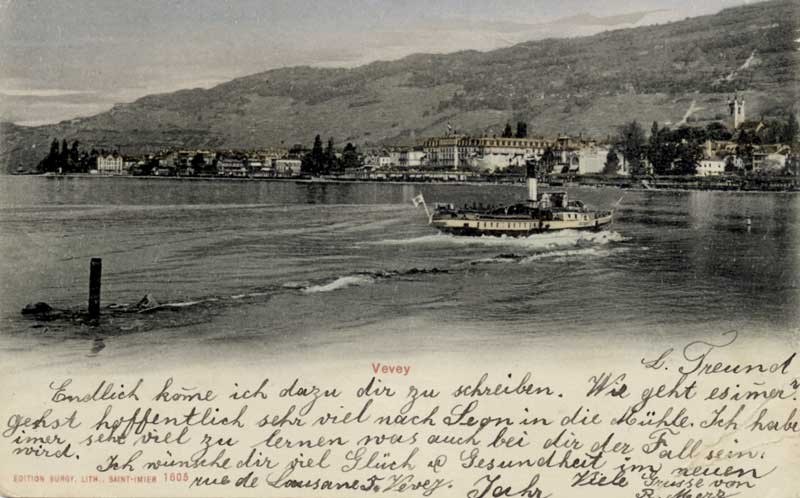 Vevey
L. Freund
Endlich kome ich dazu dir zu schreiben. Wie geht es imer?
gehst hoffentlich sehr viel nach Leon in die Mühle. Ich habe
imer, sehr viel zu lernen was auch bei dir der Fall sein
wird. Ich wünsche dir viel Glück & Gesundheit im neuen
Jahr Viele Grüsse von
rue de Lausane 5. Vevey. R. Maerz
EDITION BURGY, LITH., SAINT-IMIER 1605